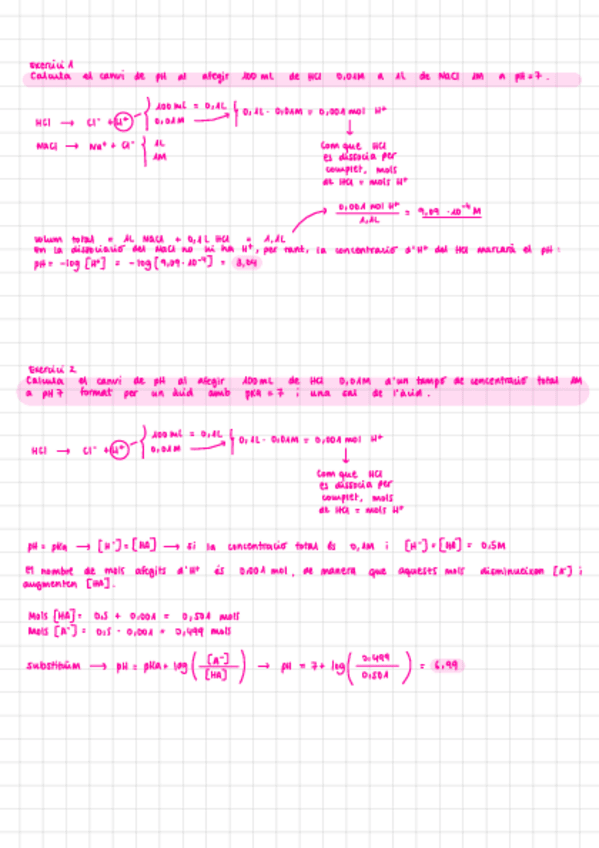 Exercici 1
Calcula el canvi de pH al afegir 100 mL de HCl 0,01M a 1L de NaCl 1M a pH=7.
HCl → Cl⁻ + H⁺ { 100 mL = 0,1L
0,01M → { 0,1L · 0,01M = 0,001 mol H⁺
NaCl → Na⁺ + Cl⁻ { 1L
1M
Com que HCl
es dissocia per
complet, mols
de HCl = mols H⁺
0,001 mol H⁺ / 1,1L = 9,09 · 10⁻⁴ M
Volum total = 1L NaCl + 0,1L HCl = 1,1L
En la dissociació del NaCl no hi ha H⁺, per tant, la concentració d'H⁺ del HCl marcarà el pH:
pH = -log [H⁺] = -log [9,09·10⁻⁴] = 3,04
Exercici 2
Calcula el canvi de pH al afegir 100 mL de HCl 0,01M d'un tampó de concentració total 1M
a pH 7 format per un àcid amb pKa = 7 i una sal de l'àcid.
HCl → Cl⁻ + H⁺ { 100 mL = 0,1L
0,01M → { 0,1L · 0,01M = 0,001 mol H⁺
Com que HCl
es dissocia per
complet, mols
de HCl = mols H⁺
pH = pKa → [A⁻] = [HA] → si la concentració total és 0,1M i [A⁻] = [HA] = 0,5M
El nombre de mols afegits d'H⁺ és 0,001 mol, de manera que aquests mols disminueixen [A⁻] i
augmenten [HA].
Mols [HA] = 0,5 + 0,001 = 0,501 mols
Mols [A⁻] = 0,5 - 0,001 = 0,499 mols
Substituïm → pH = pKa + log ([A⁻] / [HA]) → pH = 7 + log (0,499 / 0,501) = 6,99